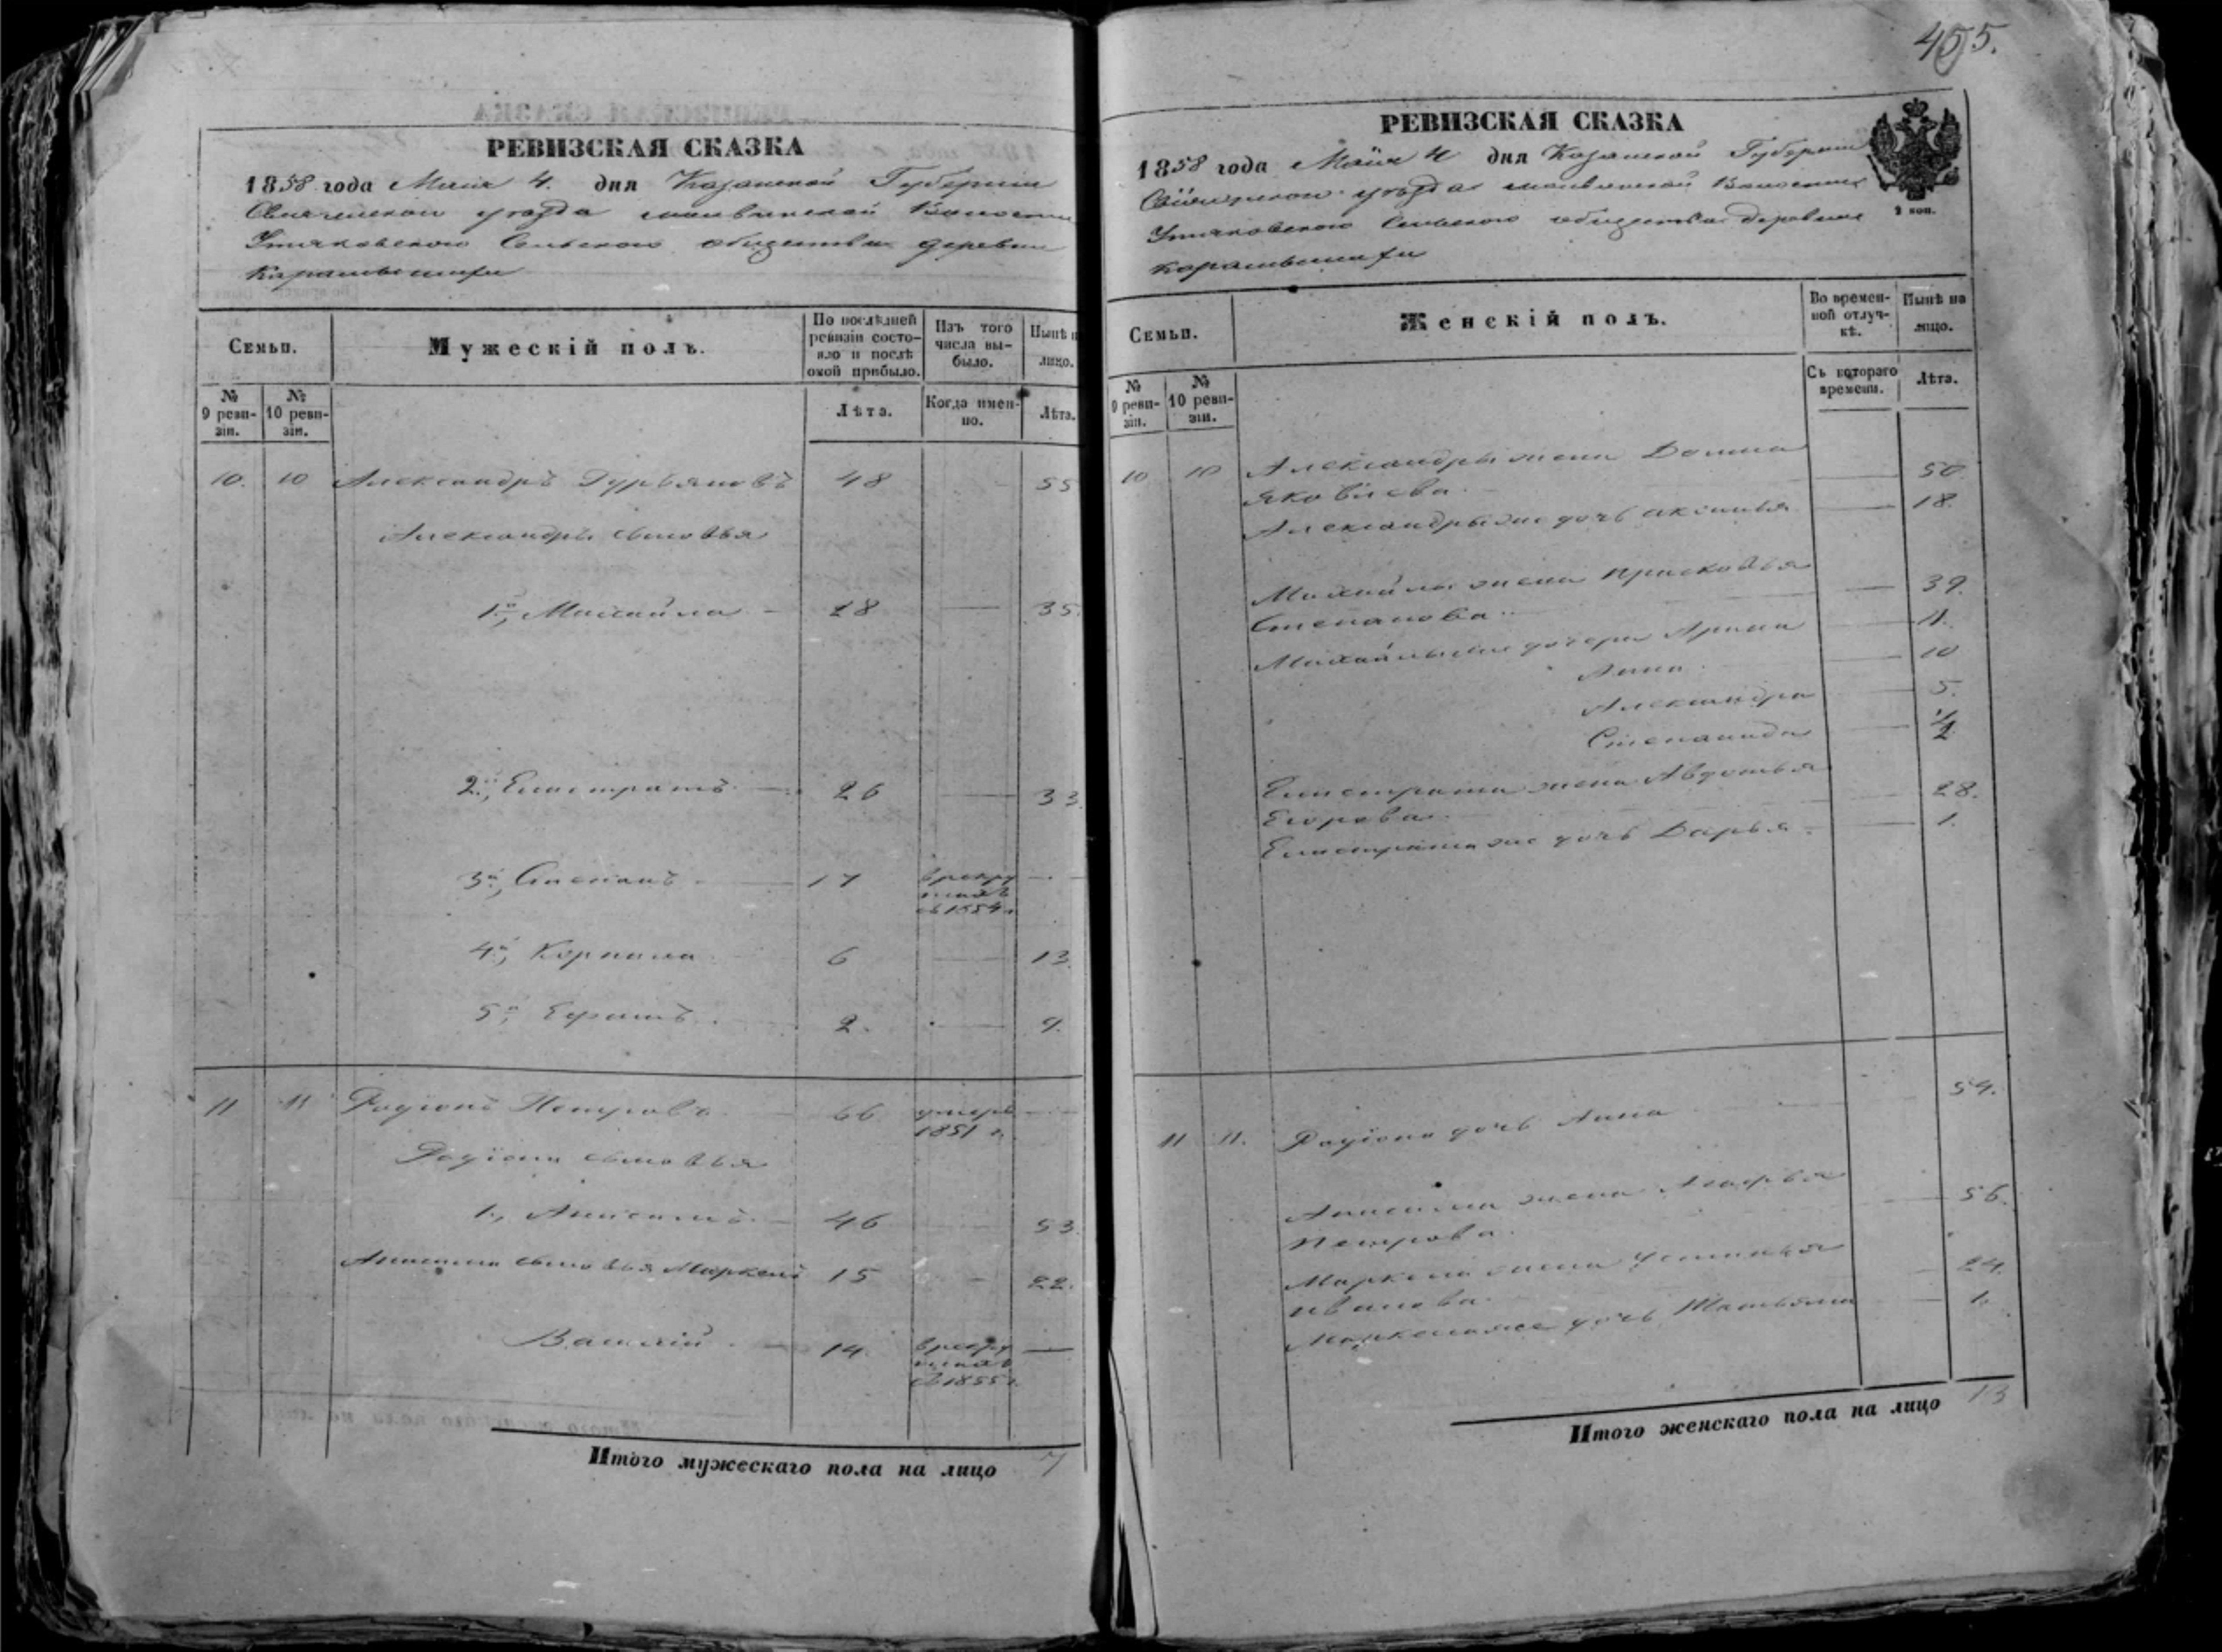 РЕВИЗСКАЯ СКАЗКА
1858 года Маія 4. дня Казанской Губерніи
Свіяжскаго уѣзда Волости
Утяковскаго Сельскаго общества деревни
Семьи.
Мужескій полъ.
По послѣдней ревизіи состояло и послѣ оной прибыло.
Изъ того числа выбыло.
Нынѣ н лицо.
№ 9 ревизіи.
№ 10 ревизіи.
Лѣта.
Когда именно.
Лѣта.
10. 10 Александръ Гурьяновъ 48 55
Александра сыновья
1й, Михайла 28 — 35.
2й, Елистратъ 26 — 33.
3й, Степанъ 17 в рекрутахъ съ 1854 г. —
4й, Корнила 6 — 13.
5й, 2. — 9.
11 11 Родіонъ Петровъ 66 умеръ 1851 г. —
Родіона сыновья
1., Анисимъ 46 53.
Анисима сыновья Маркелъ 15 — 22.
Василій 14. в рекрутахъ съ 1855 г. —
Итого мужескаго пола на лицо 7
455.
РЕВИЗСКАЯ СКАЗКА
1858 года Маія 4 дня Казанской Губерніи
Свіяжскаго уѣзда Волости
Утяковскаго Сельскаго общества деревни
2 коп.
Семьи.
Женскій полъ.
Во временной отлучкѣ.
Нынѣ на лицо.
№ 9 ревизіи.
№ 10 ревизіи.
Съ котораго времени.
Лѣта.
10 10 Александры жена Домна
Яковлева — 50
Александры же дочь Аксинья — 18.
Михайлы жена Прасковья
Степанова — 39.
Михайлы же дочери Арина — 11.
Анна — 10
Александра — 5.
Степанида — 1/2
Елистрата жена Авдотья
Егорова — 28.
Елистрата же дочь Дарья — 1.
11 11. Родіона дочь Анна — 54.
Анисима жена
Петрова — 56.
Маркела жена Устинья
Иванова — 24.
Маркела же дочь Татьяна — 1.
Итого женскаго пола на лицо 13